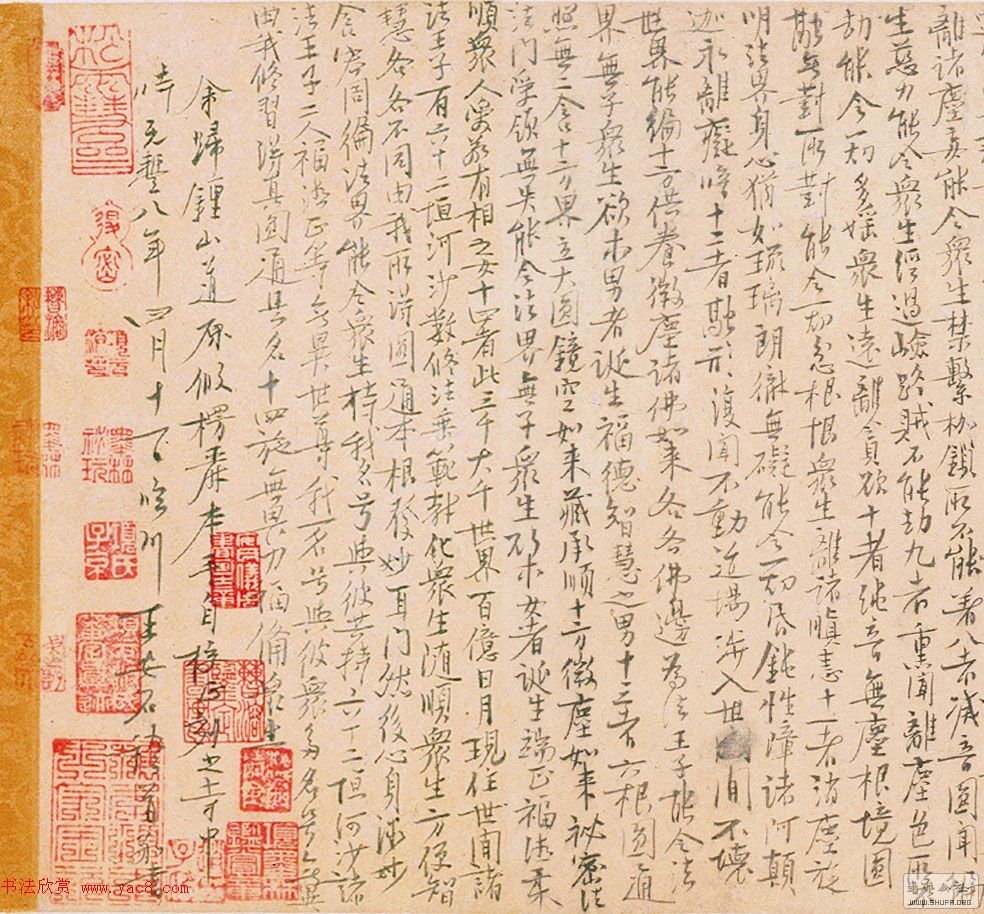 離諸塵妄能令眾生禁繫枷鎖所不能著八者滅音圓聞
生慈力能令眾生經過嶮路賊不能劫九者熏聞離塵色所
劫能令一切多婬眾生遠離貪欲十者純音無塵根境圓
融無對所對能令一切忿恨眾生離諸瞋恚十一者消塵旋
明法界身心猶如琉璃朗徹無礙能令一切昏鈍性障諸阿顛
迦永離癡暗十二者融形復聞不動道場涉入世間不壞
世界能徧十方供養微塵諸佛如來各各佛邊為法王子能令法
界無子眾生欲求男者誕生福德智慧之男十三者六根圓通
照無二含十方界立大圓鏡空如來藏承順十方微塵如來祕密法
法門受領無失能令法界無子眾生欲求女者誕生端正福德柔
順眾人愛敬有相之女十四者此三千大千世界百億日月現住世間諸
法王子有六十二恒河沙數修法垂範教化眾生隨順眾生方便智
慧各各不同由我所得圓通本根發妙耳門然後心身微妙
含容周徧法界能令眾生持我名号與彼共持六十二恒河沙諸
法王子二人福德正等無異世尊我一名号與彼眾多名号無異
由我修習得真圓通是名十四施無畏力福備眾生
余歸鍾山道原假楞嚴本手自校正刻之寺中
時元豐八年四月十一日臨川王安石稽首敬書
书法欣赏 www.yac8.com
WWW.SHUFA.ORG